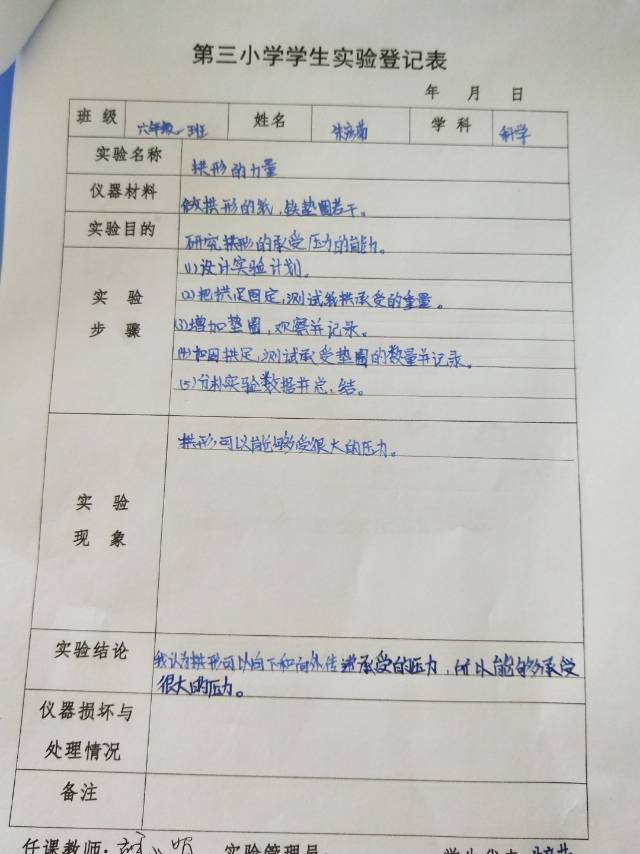 第三小学学生实验登记表
年 月 日
班级 六年级 3班 姓名 学科 科学
实验名称 拱形的力量
仪器材料 做拱形的纸,铁垫圈若干。
实验目的 研究拱形的承受压力的能力。
实验步骤 (1)设计实验计划。
(2)把拱足固定,测试纸拱承受的重量。
(3)增加垫圈,观察并记录。
(4)加固拱足,测试承受垫圈的数量并记录。
(5)分析实验数据并总结。
实验现象 拱形可以能够受很大的压力。
实验结论 我认为拱形可以向下和向外传递承受的压力,所以能够承受
很大的压力。
仪器损坏与
处理情况
备注
任课教师: 实验管理员